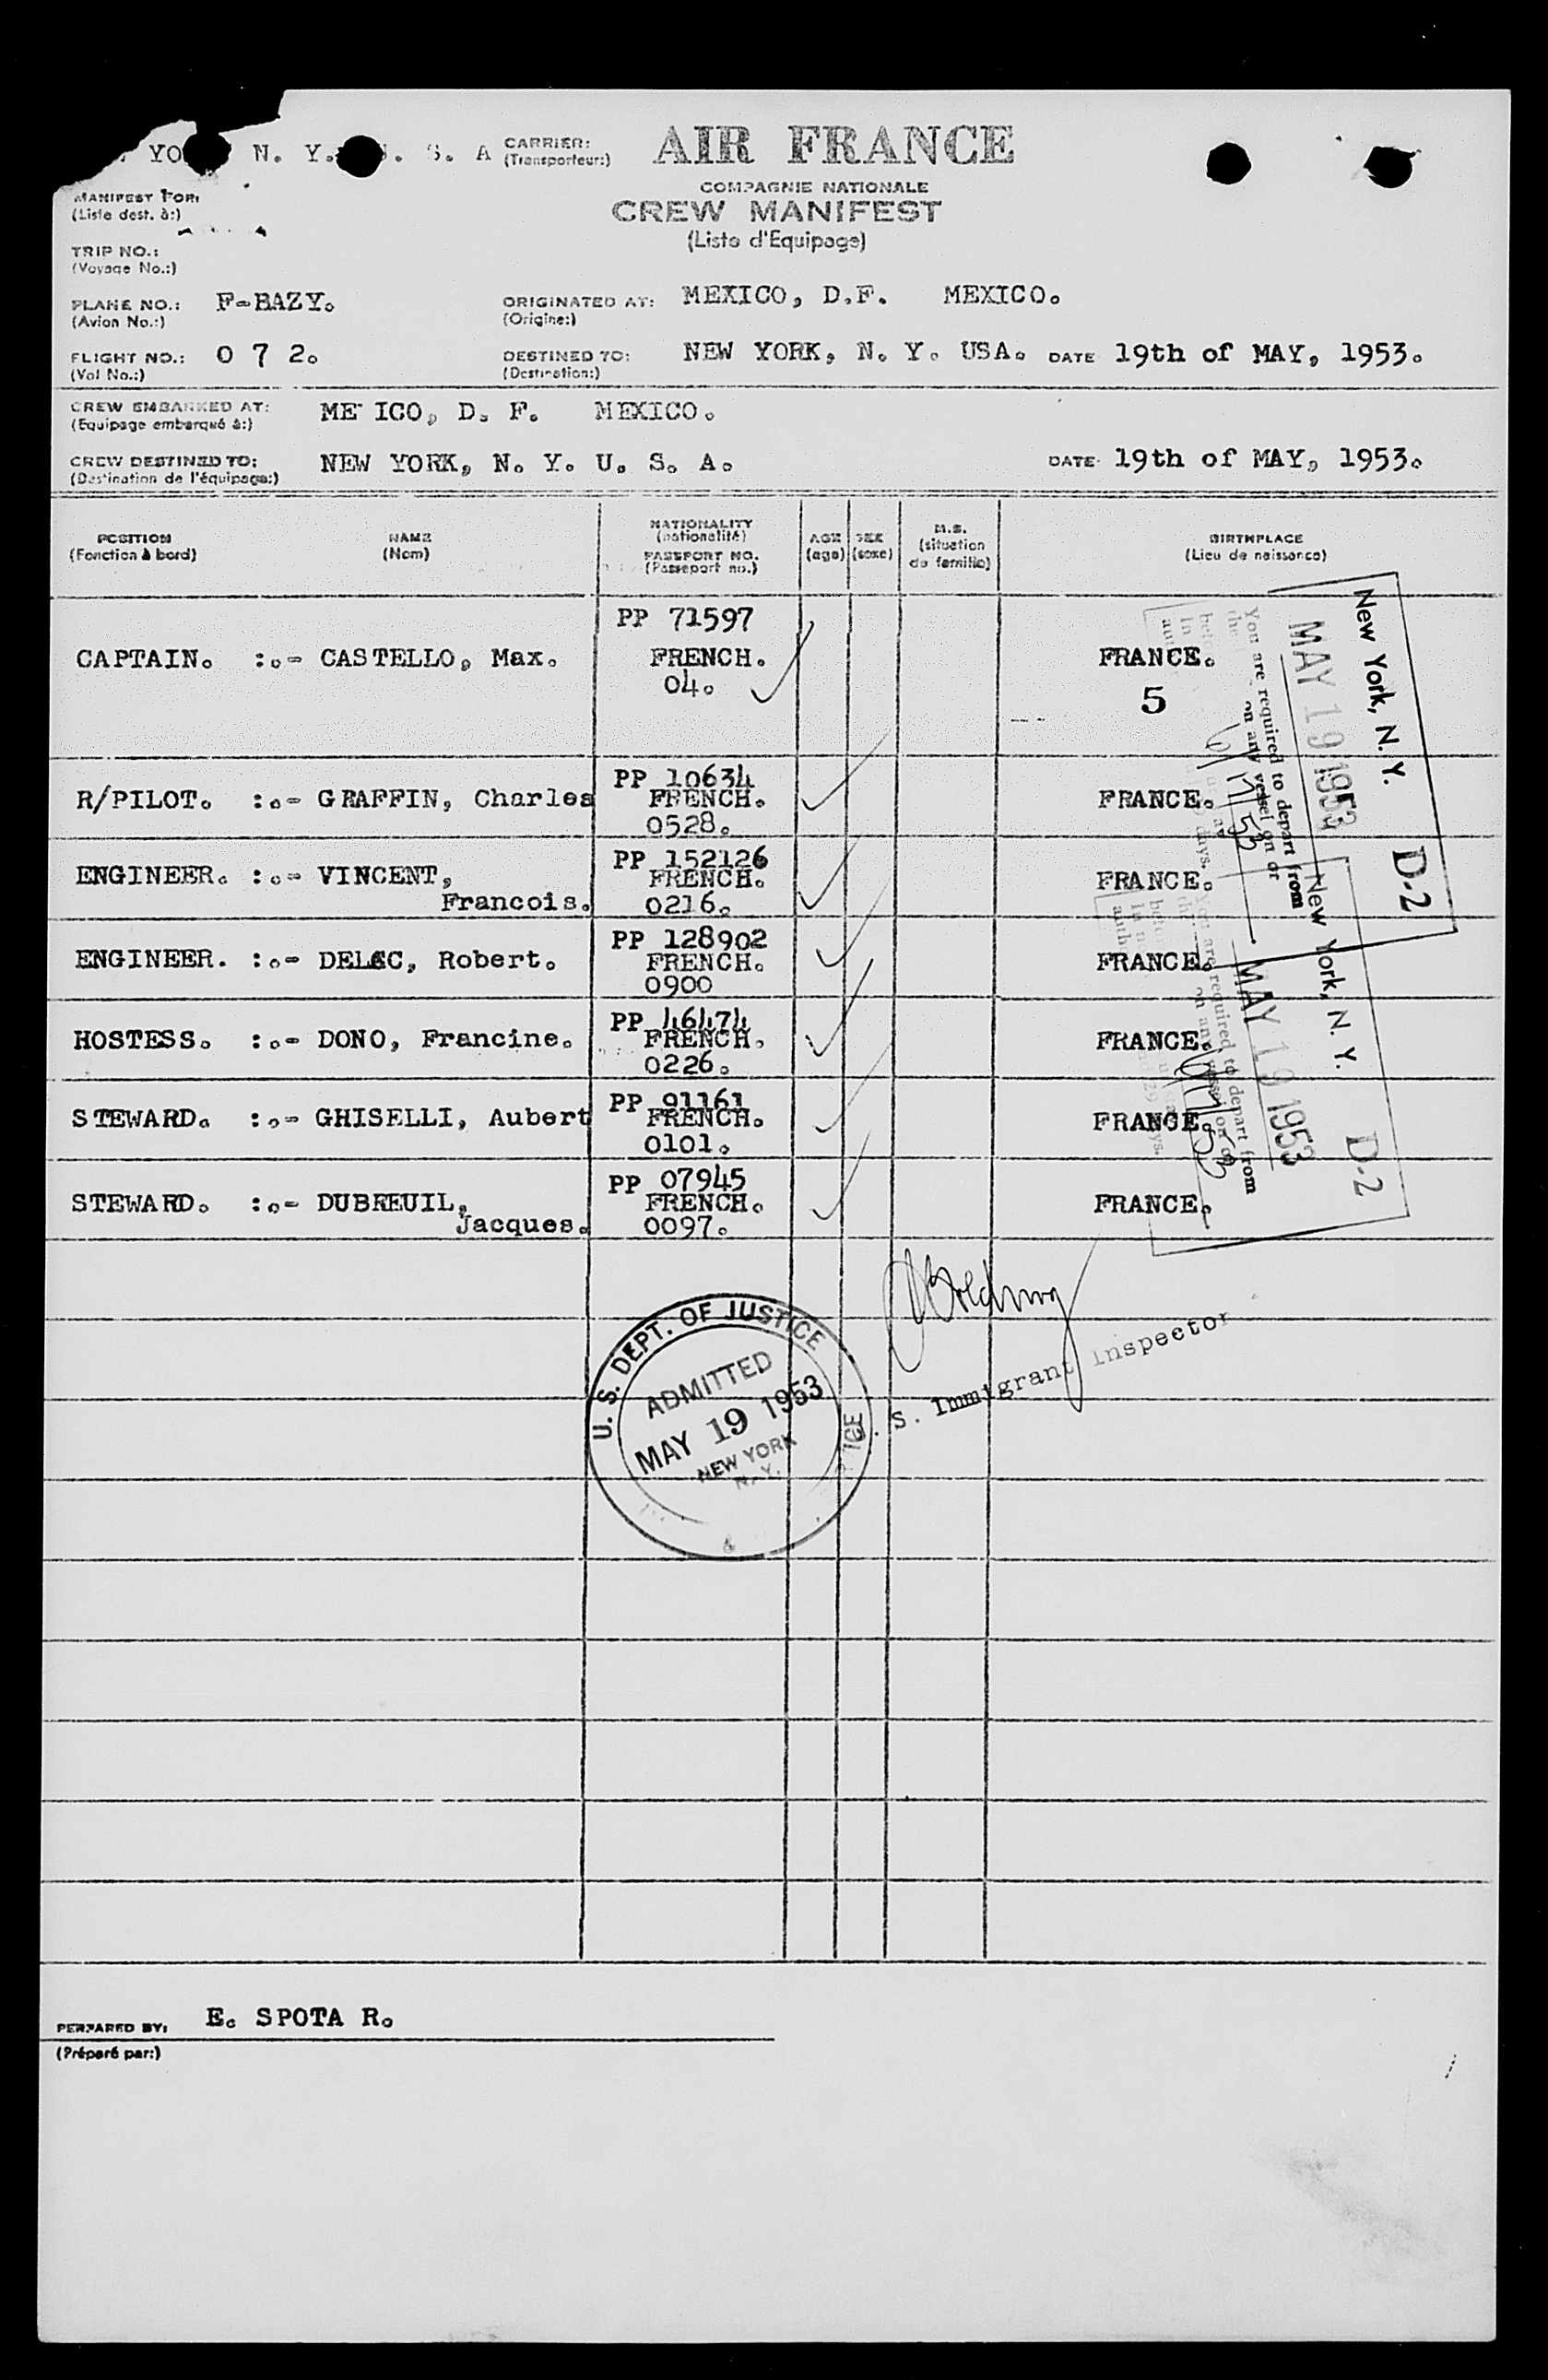 YO N. Y. S. A
CARRIER: AIR FRANCE
(Transporteur:)
COMPAGNIE NATIONALE
MANIFEST FOR:
(Liste dest. à:)
CREW MANIFEST
(Liste d'Equipage)
TRIP NO.:
(Voyage No.:)
PLANE NO.: F-BAZY. ORIGINATED AT: MEXICO, D.F. MEXICO.
(Avion No.:) (Origine:)
FLIGHT NO.: 0 7 2. DESTINED TO: NEW YORK, N. Y. USA. DATE 19th of MAY, 1953.
(Vol No.:) (Destination:)
CREW EMBARKED AT: ME ICO, D. F. MEXICO.
(Equipage embarqué à:)
CREW DESTINED TO: NEW YORK, N. Y. U. S. A. DATE 19th of MAY, 1953.
(Destination de l'équipage:)
POSITION NAME NATIONALITY AGE SEX M.S. BIRTHPLACE
(Fonction à bord) (Nom) (nationalité) (age) (sexe) (situation de famille) (Lieu de naissance)
PASSPORT NO.
(Passeport no.)
PP 71597
CAPTAIN. :.- CASTELLO, Max. FRENCH. FRANCE.
04. 5
PP 10634
R/PILOT. :.- GRAFFIN, Charles FRENCH. FRANCE.
0528.
PP 152126
ENGINEER. :.- VINCENT, FRENCH. FRANCE.
Francois. 0216.
PP 128902
ENGINEER. :.- DELEC, Robert. FRENCH. FRANCE.
0900
PP 46474
HOSTESS. :.- DONO, Francine. FRENCH. FRANCE.
0226.
PP 91161
STEWARD. :.- GHISELLI, Aubert FRENCH. FRANCE.
0101.
PP 07945
STEWARD. :.- DUBREUIL, FRENCH. FRANCE.
Jacques. 0097.
New York, N. Y. D-2
MAY 19 1953
You are required to depart from
the
on any vessel on or
New York, N. Y. D-2
MAY 19 1953
You are required to depart from
on any vessel on or
U. S. DEPT. OF JUSTICE
ADMITTED
MAY 19 1953
NEW YORK
N. Y.
S. Immigrant Inspector
PREPARED BY: E. SPOTA R.
(Préparé par:)